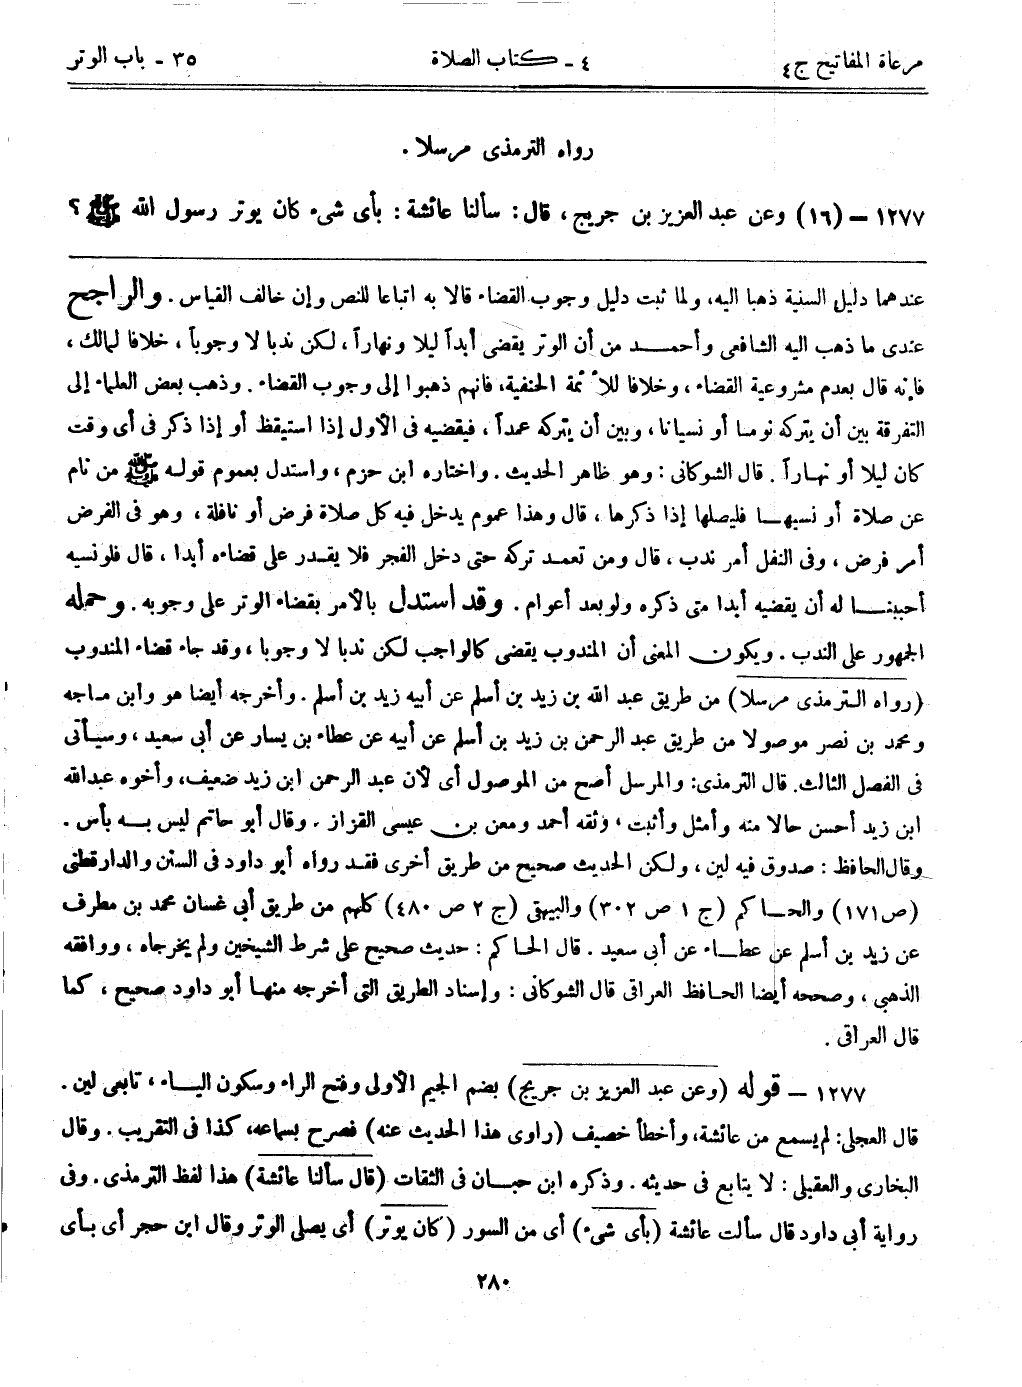 مرعاة المفاتيح ج٤
٤ - كتاب الصلاة
٣٥ - باب الوتر
رواه الترمذى مرسلا .
١٢٧٧ – (١٦) وعن عبد العزيز بن جريج، قال: سألنا عائشة: بأى شىء كان يوتر رسول الله ﷺ ؟
عندهما دليل السنية ذهبا اليه، ولما ثبت دليل وجوب القضاء قالا به اتباعا للنص وإن خالف القياس . والراجح
عندى ما ذهب اليه الشافعى وأحمد من أن الوتر يقضى أبداً ليلا ونهاراً، لكن ندبا لا وجوباً، خلافا لمالك،
فإنه قال بعدم مشروعية القضاء، وخلافا للأئمة الحنفية، فانهم ذهبوا إلى وجوب القضاء . وذهب بعض العلماء إلى
التفرقة بين أن يتركه نوما أو نسيانا، وبين أن يتركه عمداً، فيقضيه فى الأول إذا استيقظ أو إذا ذكر فى أى وقت
كان ليلا أو نهاراً . قال الشوكانى : وهو ظاهر الحديث . واختاره ابن حزم، واستدل بعموم قوله ﷺ من نام
عن صلاة أو نسيها فليصلها إذا ذكرها، قال وهذا عموم يدخل فيه كل صلاة فرض أو نافلة، وهو فى الفرض
أمر فرض، وفى النفل أمر ندب، قال ومن تعمد تركه حتى دخل الفجر فلا يقدر على قضاءه أبدا، قال فلو نسيه
أحببنا له أن يقضيه أبدا متى ذكره ولو بعد أعوام . وقد استدل بالأمر بقضاء الوتر على وجوبه . وحمله
الجمهور على الندب . ويكون المعنى أن المندوب يقضى كالواجب لكن ندبا لا وجوبا، وقد جاء قضاء المندوب
(رواه الترمذى مرسلا) من طريق عبد الله بن زيد بن أسلم عن أبيه زيد بن أسلم . وأخرجه أيضا هو وابن ماجه
ومحمد بن نصر موصولا من طريق عبد الرحمن بن زيد بن أسلم عن أبيه عن عطاء بن يسار عن أبى سعيد، وسيأتى
فى الفصل الثالث. قال الترمذى: والمرسل أصح من الموصول أى لأن عبد الرحمن ابن زيد ضعيف، وأخوه عبدالله
ابن زيد أحسن حالا منه وأمثل وأثبت، وثقه أحمد ومعن بن عيسى القزاز . وقال أبو حاتم ليس به بأس .
وقال الحافظ : صدوق فيه لين، ولكن الحديث صحيح من طريق أخرى فقد رواه أبو داود فى السنن والدارقطنى
(ص١٧١) والحاكم (ج ١ ص ٣٠٢) والبيهقى (ج ٢ ص ٤٨٠) كلهم من طريق أبى غسان محمد بن مطرف
عن زيد بن أسلم عن عطاء عن أبى سعيد . قال الحاكم : حديث صحيح على شرط الشيخين ولم يخرجاه، ووافقه
الذهبى، وصححه أيضا الحافظ العراقى قال الشوكانى : وإسناد الطريق التى أخرجه منها أبو داود صحيح، كما
قال العراقى .
١٢٧٧ – قوله (وعن عبد العزيز بن جريج) بضم الجيم الأولى وفتح الراء وسكون الياء، تابعى لين .
قال العجلى: لم يسمع من عائشة، وأخطأ خصيف (راوى هذا الحديث عنه) فصرح بسماعه، كذا فى التقريب . وقال
البخارى والعقيلى : لا يتابع فى حديثه . وذكره ابن حبان فى الثقات (قال سألنا عائشة) هذا لفظ الترمذى . وفى
رواية أبى داود قال سألت عائشة (بأى شىء) أى من السور (كان يوتر) أى يصلى الوتر وقال ابن حجر أى بأى
٢٨٠